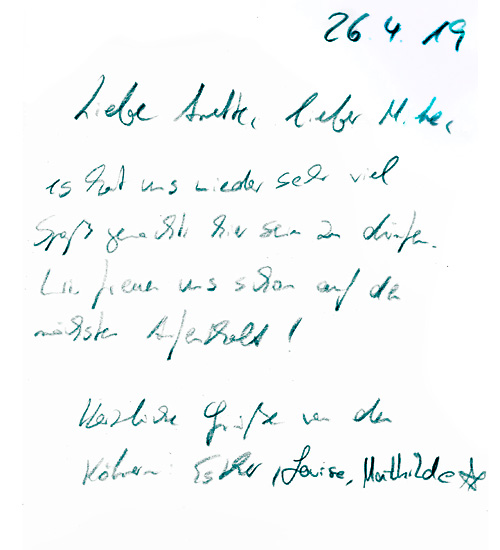 26.4.19
Liebe Anette, lieber Mike,
es hat uns wieder sehr viel
Spaß gemacht hier sein zu dürfen.
Wir freuen uns schon auf den
nächsten Aufenthalt!
Herzliche Grüße von den
Kölnern: Esther, Louise, Mathilde